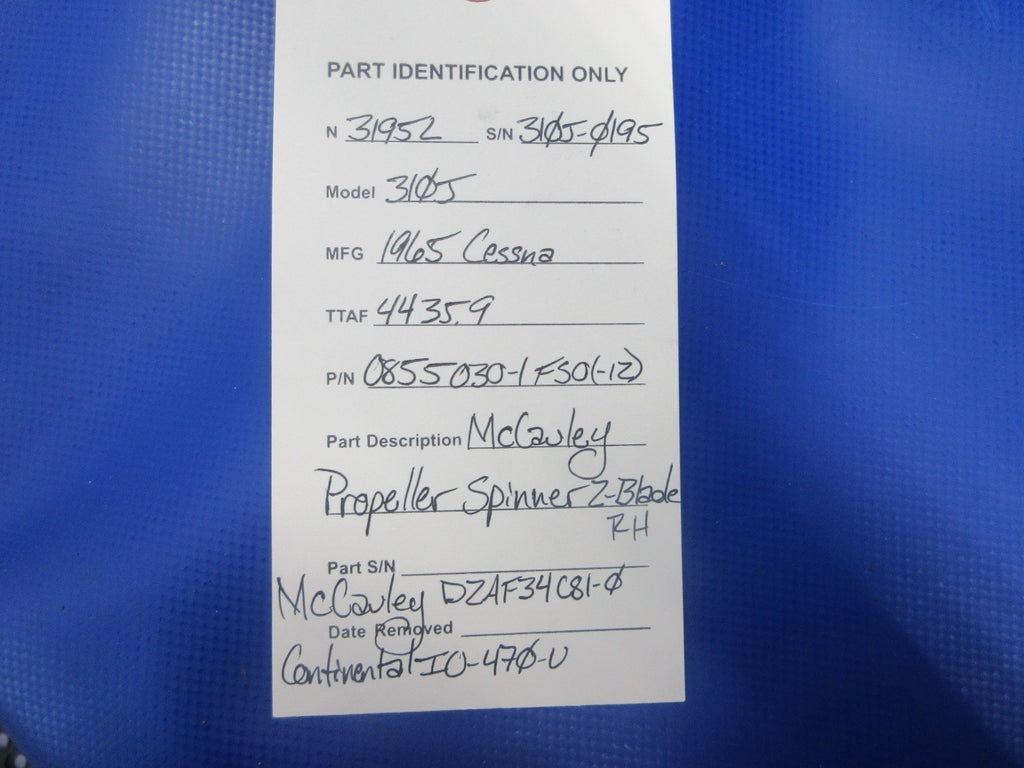 PART IDENTIFICATION ONLY
N 31952 S/N 310J-0195
Model 310J
MFG 1965 Cessna
TTAF 4435.9
P/N 0855030-1 FSO(-12)
Part Description McCauley
Propeller Spinner 2-Blade
RH
Part S/N
McCauley D2AF34C81-0
Date Removed
Continental IO-470-U